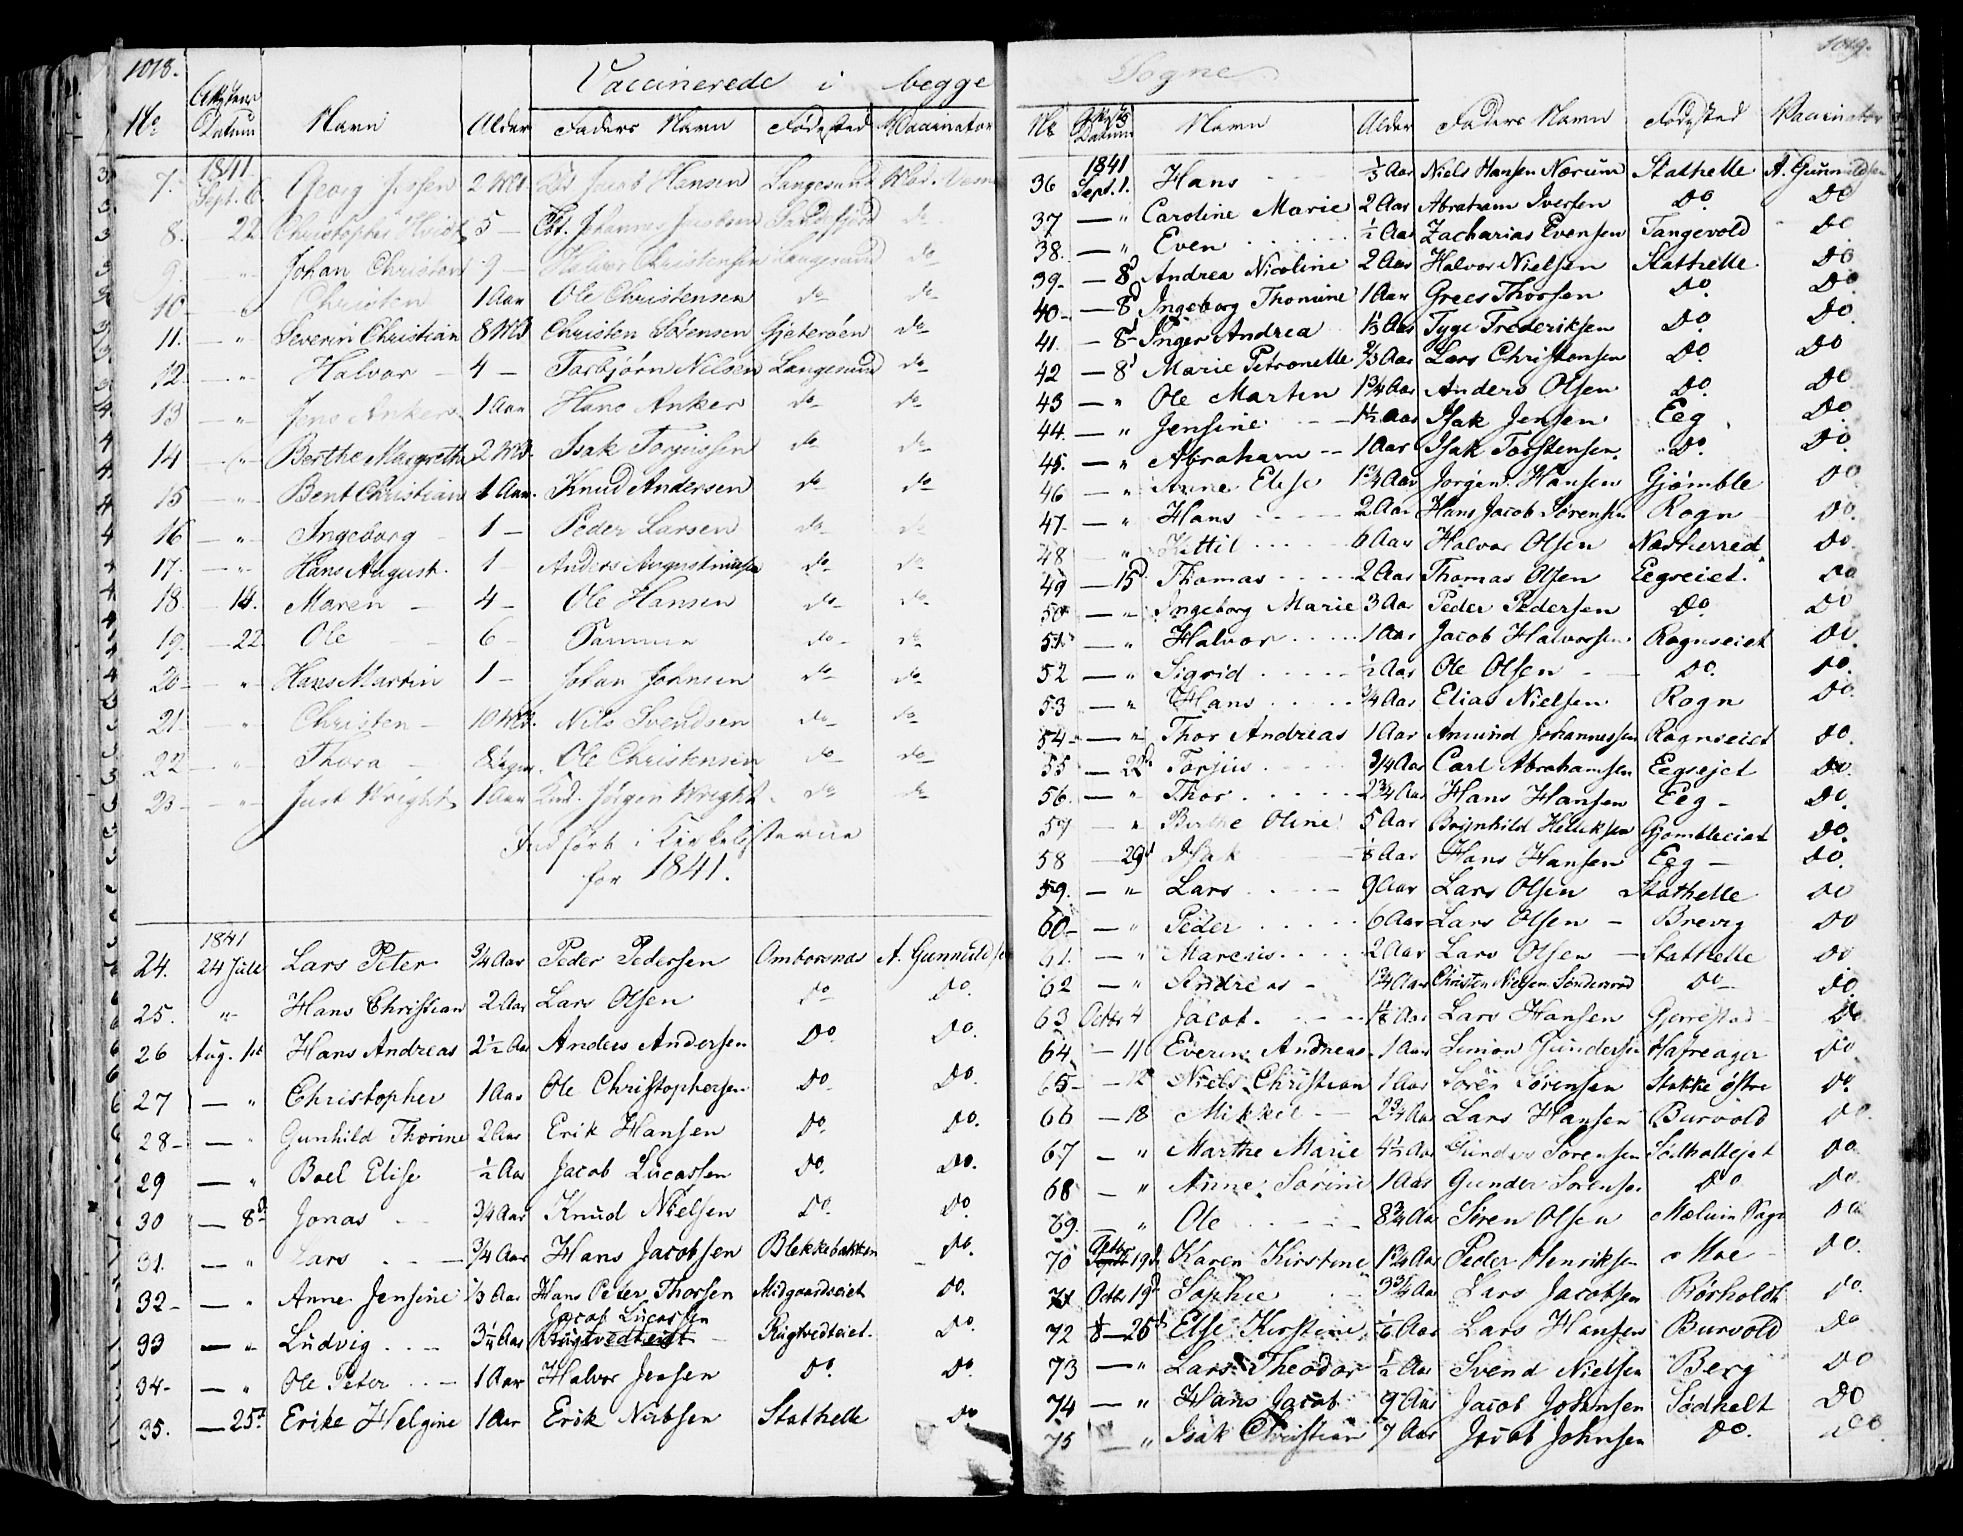 1018.
Vaccinerede i begge
No Datum Navn Alder Faders Navn Fødested Vaccinator
1841
7. Sept. 6. Georg 2 Md Jacob Hansen Langesund
8. — 22 Christopher 5 — Johannes Jacobsen do
9. — " Johan Christian 9 — Halvor Christensen Langesund do
10 — " Christen 1 Aar Ole Christensen do do
11. — " Severin Christian 8 Md Christen Sørensen Gjeterøen do
12. — " Halvor 4 — Torbjørn Nilsen Langesund do
13 — " Jens Anker 1 Aar Hans Anker do do
14 — " Berthe Margrethe 2 Md. Isak Torjussen do do
15 — " Bent Christian 1 Aar. Knud Andersen do do
16 — " Ingeborg 1 — Peder Larsen do do
17. — " Hans August. 1 Anders Augustinusen do do
18. — 14. Maren — 4 — Ole Hansen do do
19. — 22 Ole 6 — Samme do do
20 — " Hans Martin 1 — Johan Johnsen do do
21 — " Christen — 10 Md. Nils Svendsen do do
22 — " Thora — Ole Christensen do do
23 — " Just Wright 1 Aar Jørgen Wright. do do
Indført i Kirkelisterne
for 1841.
1841
24. 24 Jule Lars Peter ¾ Aar Peder Pedersen Omborsnæs A. Gunnuldsen
25. " Hans Christian 2 Aar Lars Olsen Do Do.
26 Aug. 1st Hans Andreas 2½ Aar Anders Andersen Do Do.
27 — " Christopher 1 Aar Ole Christophersen Do Do.
28 — " Gunhild Thorine 2 Aar Erik Hansen Do Do.
29 — " Boel Elise ½ Aar Jacob Lucassen Do. Do.
30 — 8d Jonas ¾ Aar Knud Nielsen Do. Do.
31. — " Lars ¾ Aar Hans Jacobsen Blekkebakken Do.
32 — " Anne Jensine ⅓ Aar Hans Peter Thorsen Midgaardseiet Do.
Jacob Lucassen
33 — " Ludvig 3½ Aar Rugtvedteiet Rugtvedteiet. Do
34 — " Ole Peter 1 Aar Halvor Jensen Do. Do.
35. — 25d Erike Helgine 1 Aar Erik Nubsen Stathelle Do
1019.
Sogne.
No Datum Navn Alder Faders Navn Fødested Vaccinator
1841
36 Sept. 1. Hans ⅓ Aar Niels Hansen Nærum Stathelle A. Gunnuldsen
37 — " Caroline Marie 2 Aar Abraham Iversen Do. Do
38. — " Even ½ Aar Zacharias Evensen Tangevold Do
39 — 8d Andrea Nicoline 2 Aar Halvor Nielsen Stathelle Do
40 — 8d Ingeborg Thomine 1 Aar Grees Thorsen Do. Do.
41. — 8d Inger Andrea 1⅓ Aar Tyge Frederiksen Do. Do.
42 — 8d Marie Petronelle ⅔ Aar Lars Christensen Do. Do
43 — " Ole Martin 1¾ Aar Anders Olsen Do. Do.
44. — " Jensine 1½ Aar Isak Jensen Eeg Do.
45. — " Abraham 1 Aar Isak Torstensen Do. Do.
46 — " Anne Elise 1¾ Aar Jørgen Hansen Gjømble Do
47 — " Hans 2 Aar Hans Jacob Sørensen Rogn Do.
48 " Kittil 6 Aar Halvor Olsen Nastierred Do.
49 — 15d Thomas 2 Aar Thomas Olsen Eegseiet. Do
50 — " Ingeborg Marie 3 Aar Peder Pedersen Do. Do
51 " Halvor 1 Aar Jacob Halvorsen Rognseiet Do.
52 — " Sigrid ½ Aar Ole Olsen Do. Do.
53 — " Hans ¾ Aar Elias Nielsen Rogn Do.
54 — " Thor Andreas 1 Aar Amund Johannessen Rognseiet Do.
55 — 22d Torjus ¾ Aar Carl Abrahamsen Eegsejet Do.
56. — " Thor 2¾ Aar Hans Hansen Eeg Do.
57 — " Birthe Oline 5 Aar Brynhild Helliksen Gjømbleeiet Do.
58 — 29d Isak Aar Hans Hansen Eeg Do.
59. — " Lars 9 Aar Lars Olsen Stathelle Do
60 — " Peder 6 Aar Lars Olsen Brevig Do
61. — " Marcus 2 Aar Lars Olsen Stathelle Do
62 — " Andreas 1¾ Aar Christen Nielsen Do Do.
63 Octbr 4 Jacob Aar Lars Hansen Gjerrestad Do.
64 — 11 Everin Andreas 1 Aar Simon Gundersen Hafreager Do.
65 — 12 Niels Christian 1 Aar Søren Sørensen Stokke østre Do.
66 — 18 Mikkel 2¾ Aar Lars Hansen Burvold Do.
67 — " Marthe Marie 4½ Aar Gunder Sørensen Sødholtejet Do.
68 — " Anne Sørine 1 Aar Gunder Sørensen Do Do.
69. — " Ole 8¾ Aar Søren Olsen Do
70 Octbr Septb 19d Karen Kirstine 1¾ Aar Peder Henriksen Moe Do.
71 Octbr 19d Sophie 3¾ Aar Lars Jacobsen Rørholdt Do.
72 — 26d Else Kirstine Aar Lars Hansen Burvold Do
73 — " Lars Theodor ½ Aar Svend Nielsen Berg Do
74 — " Hans Jacob 9 Aar Jacob Johnsen Sødholt Do
75 — " Isak Christian 7 Aar Jacob Johnsen Do. Do.